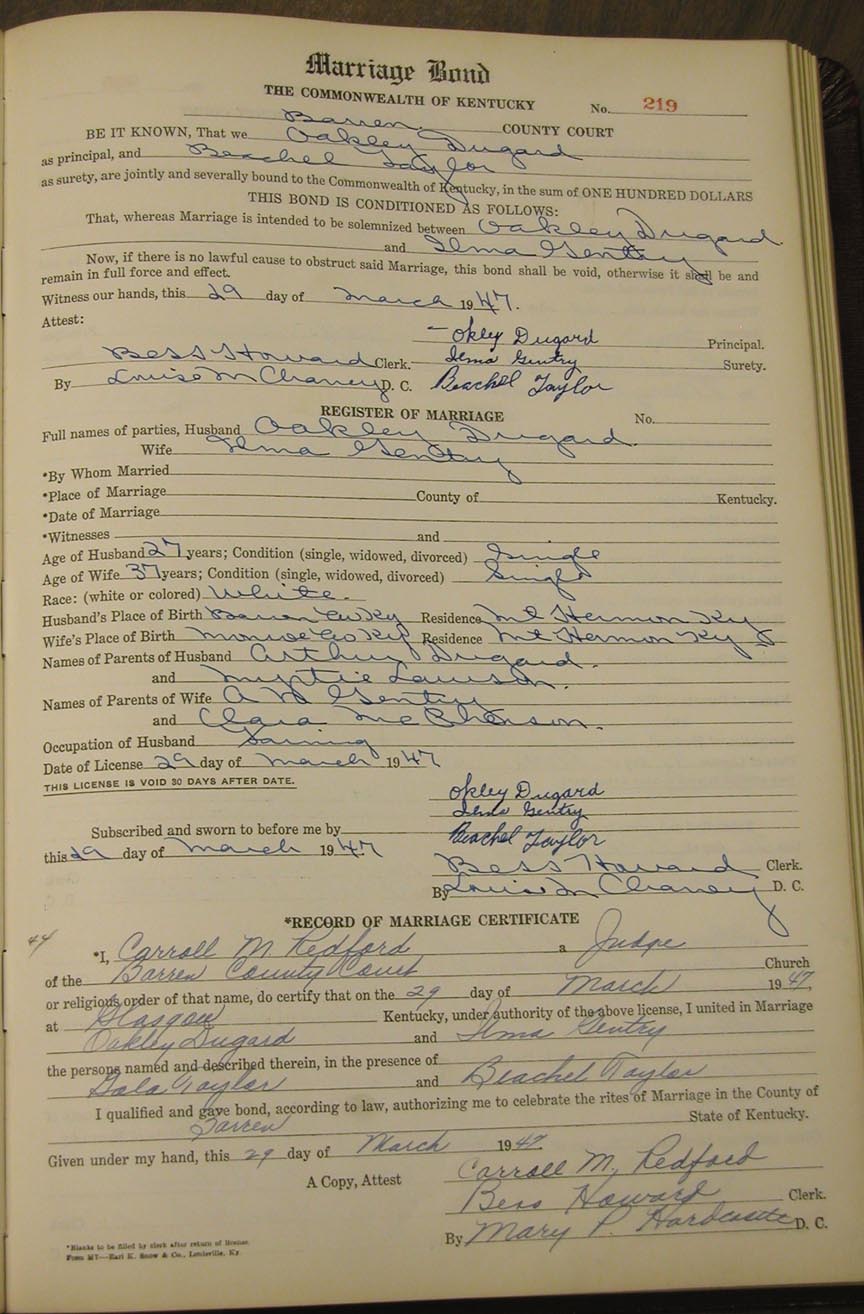 Marriage Bond
THE COMMONWEALTH OF KENTUCKY No. 219
Barren COUNTY COURT
BE IT KNOWN, That we Oakley Dugard
as principal, and Beachel Taylor
as surety, are jointly and severally bound to the Commonwealth of Kentucky, in the sum of ONE HUNDRED DOLLARS
THIS BOND IS CONDITIONED AS FOLLOWS:
That, whereas Marriage is intended to be solemnized between Oakley Dugard
and Ilma Gentry
Now, if there is no lawful cause to obstruct said Marriage, this bond shall be void, otherwise it shall be and
remain in full force and effect.
Witness our hands, this 29 day of March 1947.
Attest:
Okley Dugard Principal.
Bess Howard Clerk. Ilma Gentry Surety.
By Louise M Chaney D. C. Beachel Taylor
REGISTER OF MARRIAGE No.
Full names of parties, Husband Oakley Dugard.
Wife Ilma Gentry
*By Whom Married
*Place of Marriage County of Kentucky.
*Date of Marriage
*Witnesses and
Age of Husband 27 years; Condition (single, widowed, divorced) Single
Age of Wife 37 years; Condition (single, widowed, divorced) Single
Race: (white or colored) White.
Husband's Place of Birth Barren Co Ky Residence Mt Hermon Ky
Wife's Place of Birth Monroe Co Ky Residence Mt Hermon Ky
Names of Parents of Husband Arthur Dugard.
and Myrtie Lawson.
Names of Parents of Wife A Gentry
and Clara McPherson.
Occupation of Husband
Date of License 29 day of March 1947
THIS LICENSE IS VOID 30 DAYS AFTER DATE.
Okley Dugard
Ilma Gentry
Subscribed and sworn to before me by Beachel Taylor
this 29 day of March 1947.
Bess Howard Clerk.
By Louise M Chaney D. C.
*RECORD OF MARRIAGE CERTIFICATE
44
*I, Carroll M. Redford a Judge
of the Barren County Court Church
or religious order of that name, do certify that on the 29 day of March 1947,
at Glasgow Kentucky, under authority of the above license, I united in Marriage
Oakley Dugard and Ilma Gentry
the persons named and described therein, in the presence of
Taylor and Beachel Taylor
I qualified and gave bond, according to law, authorizing me to celebrate the rites of Marriage in the County of
Barren State of Kentucky.
Given under my hand, this 29 day of March 1947.
Carroll M. Redford
A Copy, Attest Bess Howard Clerk.
By Mary P. Hardcastle D. C.
*Blanks to be filled by clerk after return of license.
Form M7—Earl K. Snow & Co., Louisville, Ky.